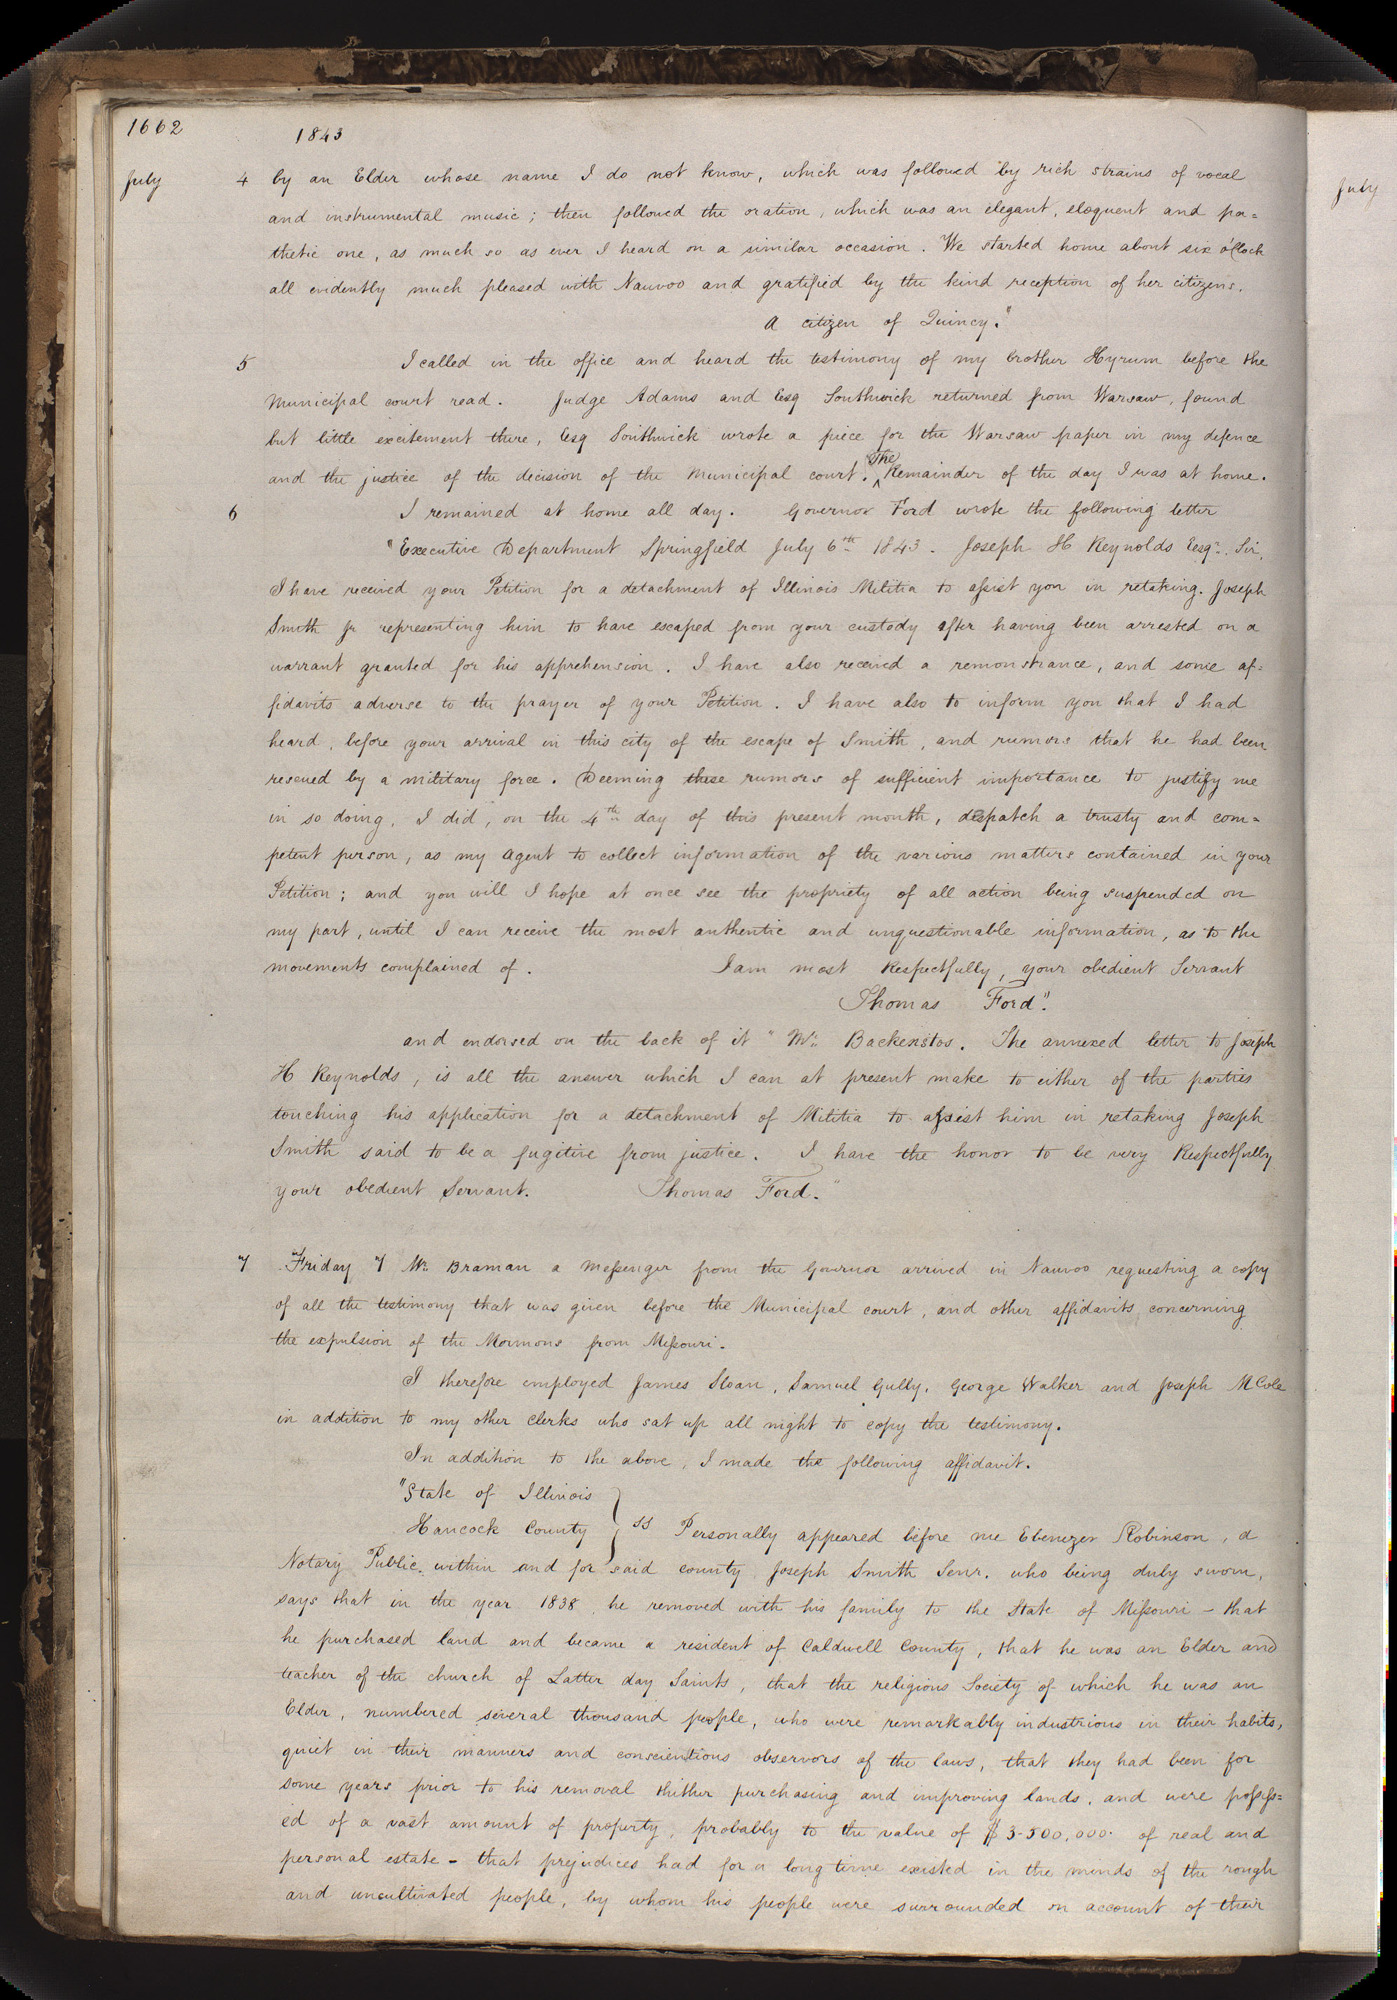 1662
1843
July 4 by an Elder whose name I do not know, which was followed by rich strains of vocal
July
and instrumental music; then followed the oration, which was an elegant, eloquent and pa=
thetic one, as much so as ever I heard on a similar occasion. We started home about six o'Clock
all evidently much pleased with Nauvoo and gratified by the kind reception of her citizens.
A citizen of Quincy."
5 I called in the office and heard the testimony of my brother Hyrum before the
Municipal court read. Judge Adams and Esq Southwick returned from Warsaw, found
but little excitement there, Esq Southwick wrote a piece for the Warsaw paper in my defence
and the justice of the decision of the Municipal court. The Remainder of the day I was at home.
6 I remained at home all day. Governor Ford wrote the following letter
"Executive Department Springfield July 6th 1843. Joseph H Reynolds Eesqr. Sir,
I have received your Petition for a detachment of Illinois Militia to assist you in retaking. Joseph
Smith Jr representing him to have escaped from your custody after having been arrested on a
warrant granted for his apprehension. I have also received a remonstrance, and some af=
fidavits adverse to the prayer of your Petition. I have also to inform you that I had
heard, before your arrival in this city of the escape of Smith, and rumors that he had been
rescued by a military force. Deeming these rumors of sufficient importance to justify me
in so doing, I did, on the 4th day of this present month, despatch a trusty and com=
petent person, as my agent to collect information of the various matters contained in your
Petition; and you will I hope at once see the propriety of all action being suspended on
my part, until I can receive the most authentic and unquestionable information, as to the
movements complained of. I am most Respectfully, your obedient Servant
Thomas Ford".
and endorsed on the back of it "Mr. Backenstos. The annexed letter to Joseph
H Reynolds, is all the answer which I can at present make to either of the parties
touching his application for a detachment of Militia to assist him in retaking Joseph
Smith said to be a fugitive from justice. I have the honor to be very Respectfully
your obedient Servant. Thomas Ford."
7 Friday 7 Mr. Braman a Messenger from the Governor arrived in Nauvoo requesting a copy
of all the testimony that was given before the Municipal court, and other affidavits concerning
the expulsion of the Mormons from Missouri.
I therefore employed James Sloan, Samuel Gully, George Walker and Joseph M Cole
in addition to my other clerks who sat up all night to copy the testimony.
In addition to the above, I made the following affidavit.
"State of Illinois
Hancock County } ss Personally appeared before me Ebenezer Robinson, a
Notary Public. within and for said county Joseph Smith Senr. who being duly sworn,
says that in the year 1838, he removed with his family to the State of Missouri - that
he purchased land and became a resident of Caldwell County, that he was an Elder and
teacher of the church of Latter day Saints, that the religious Society of which he was an
Elder, numbered several thousand people, who were remarkably industrious in their habits,
quiet in their manners and conscientious observors of the laws, that they had been for
some years prior to his removal thither purchasing and improving lands, and were possess=
ed of a vast amount of property, probably to the value of $3.500,000. of real and
personal estate - that prejudices had for a long time existed in the minds of the rough
and uncultivated people, by whom his people were surrounded on account of their